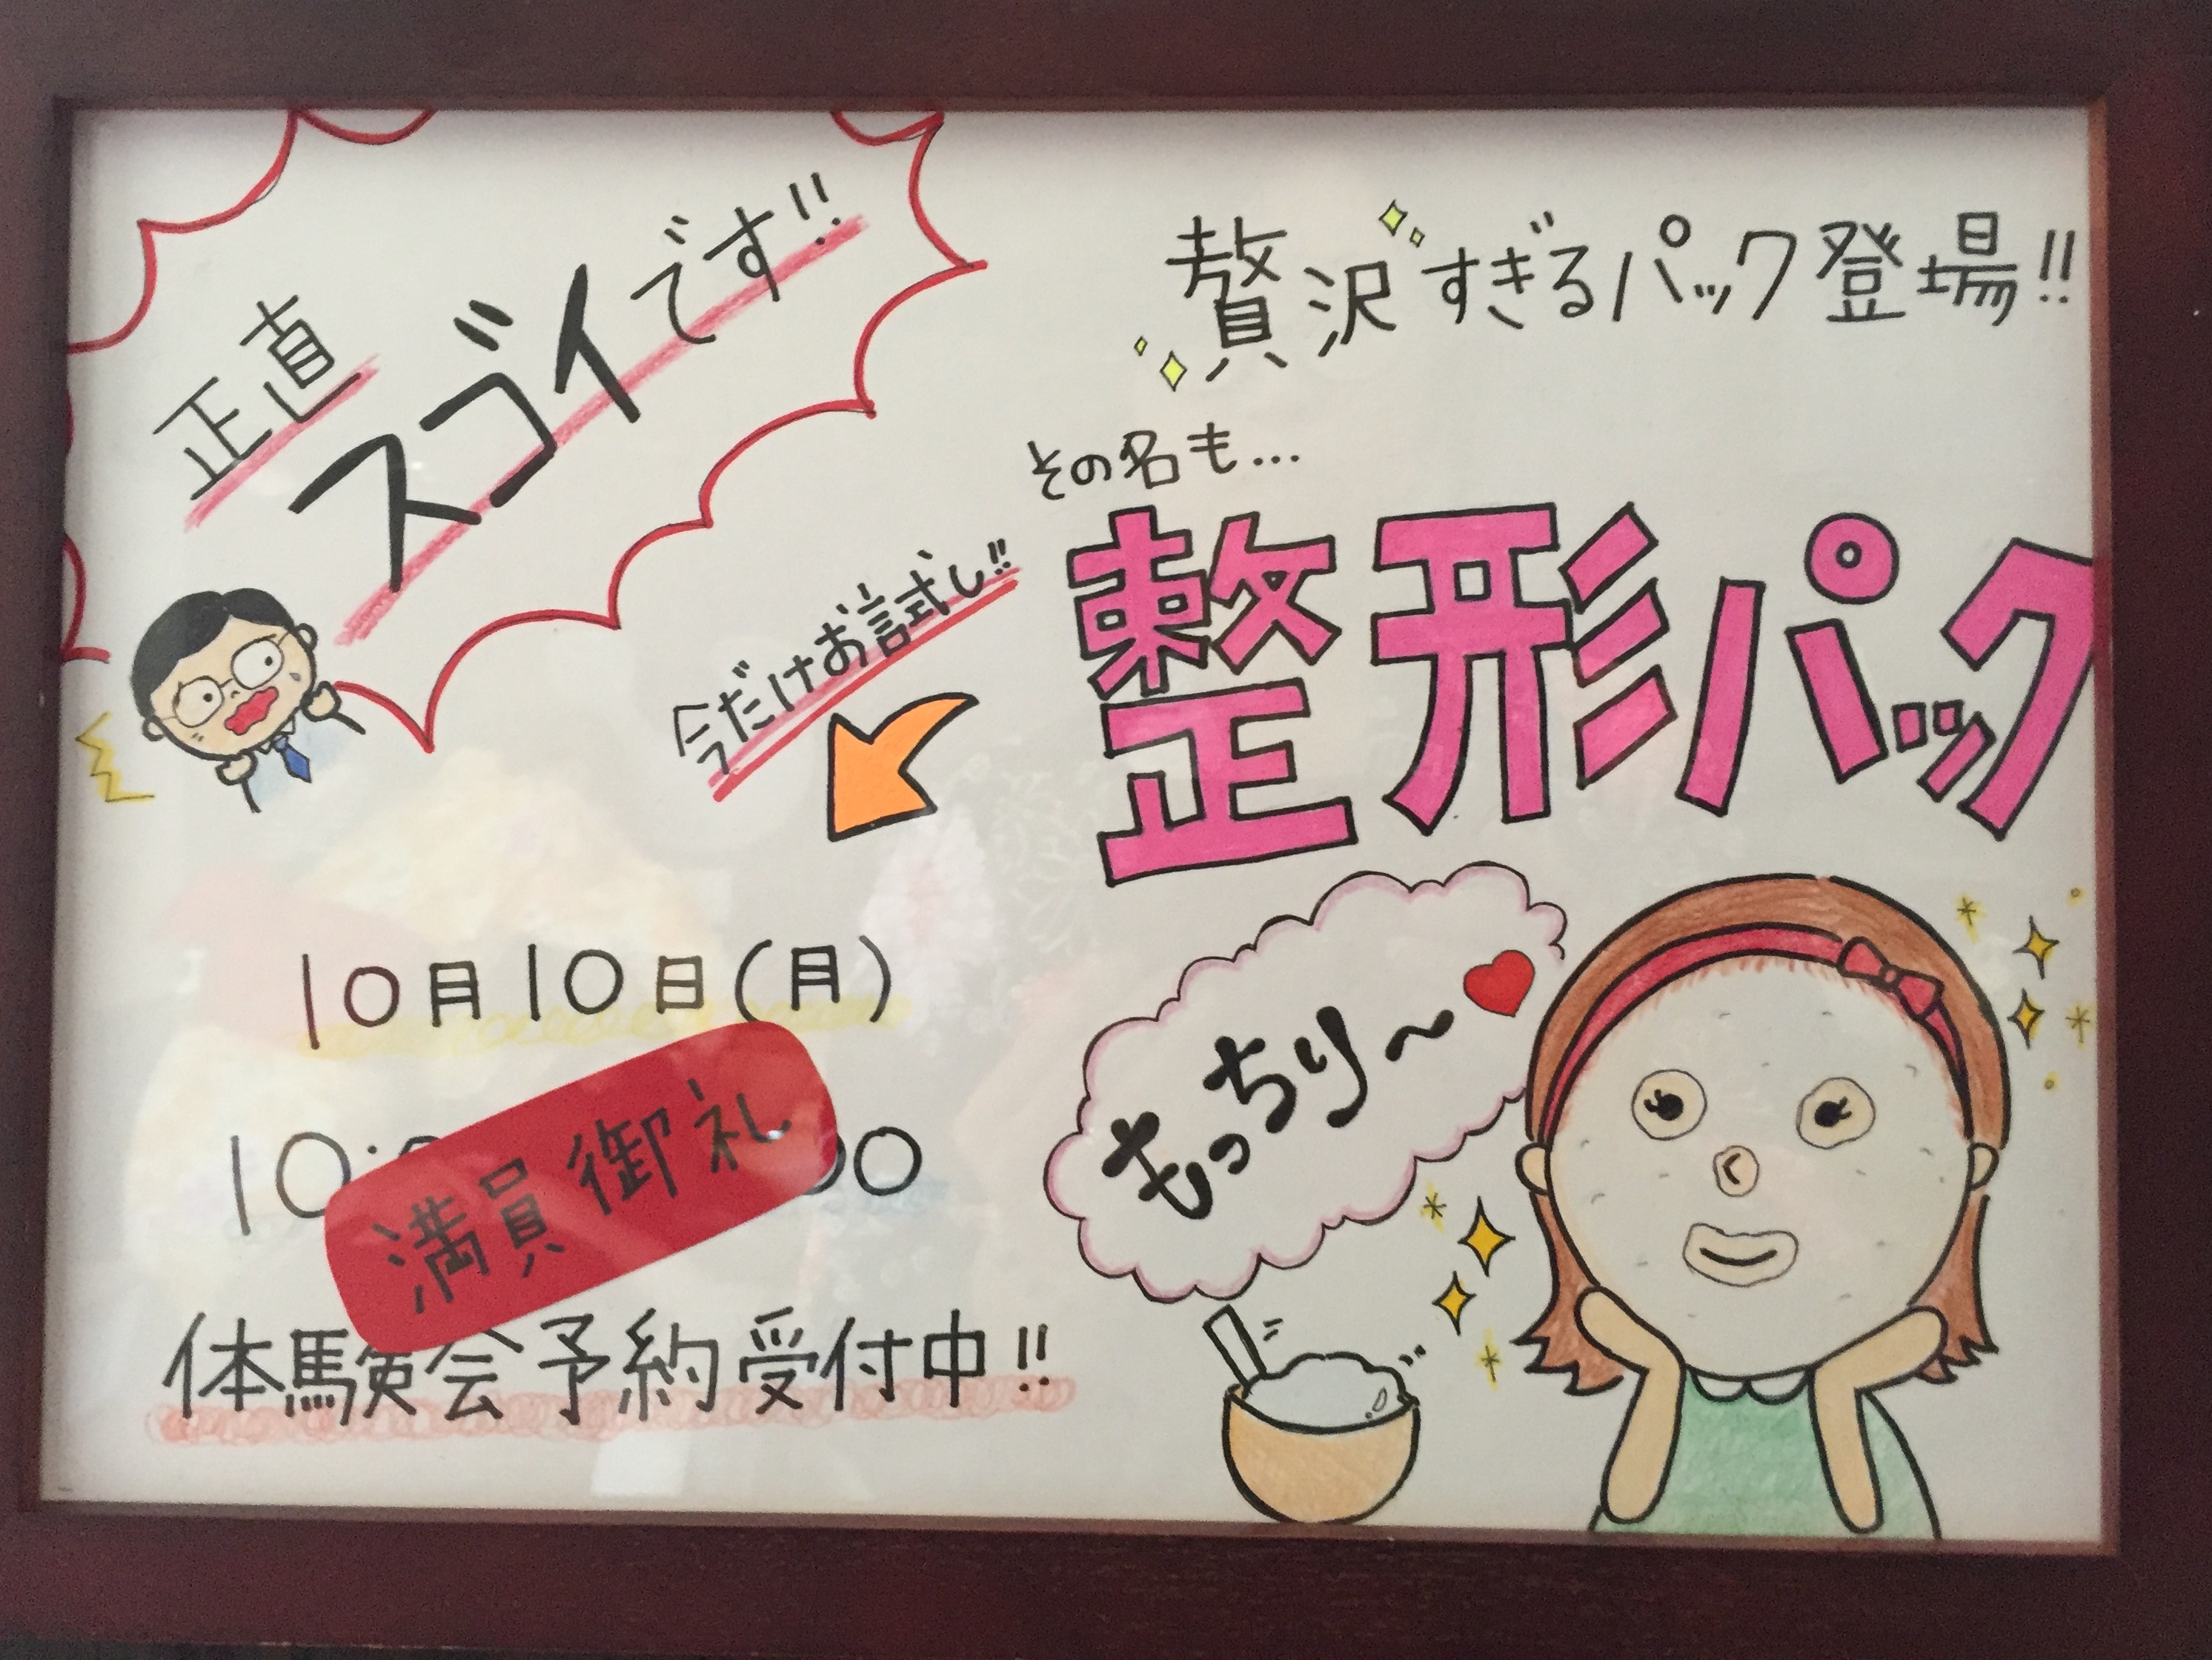 正直
スゴイです!!
贅沢すぎるパック登場!!
その名も...
整形パック
今だけお試し!!
もっちり〜
10月10日(月)
満員御礼
体験会予約受付中!!